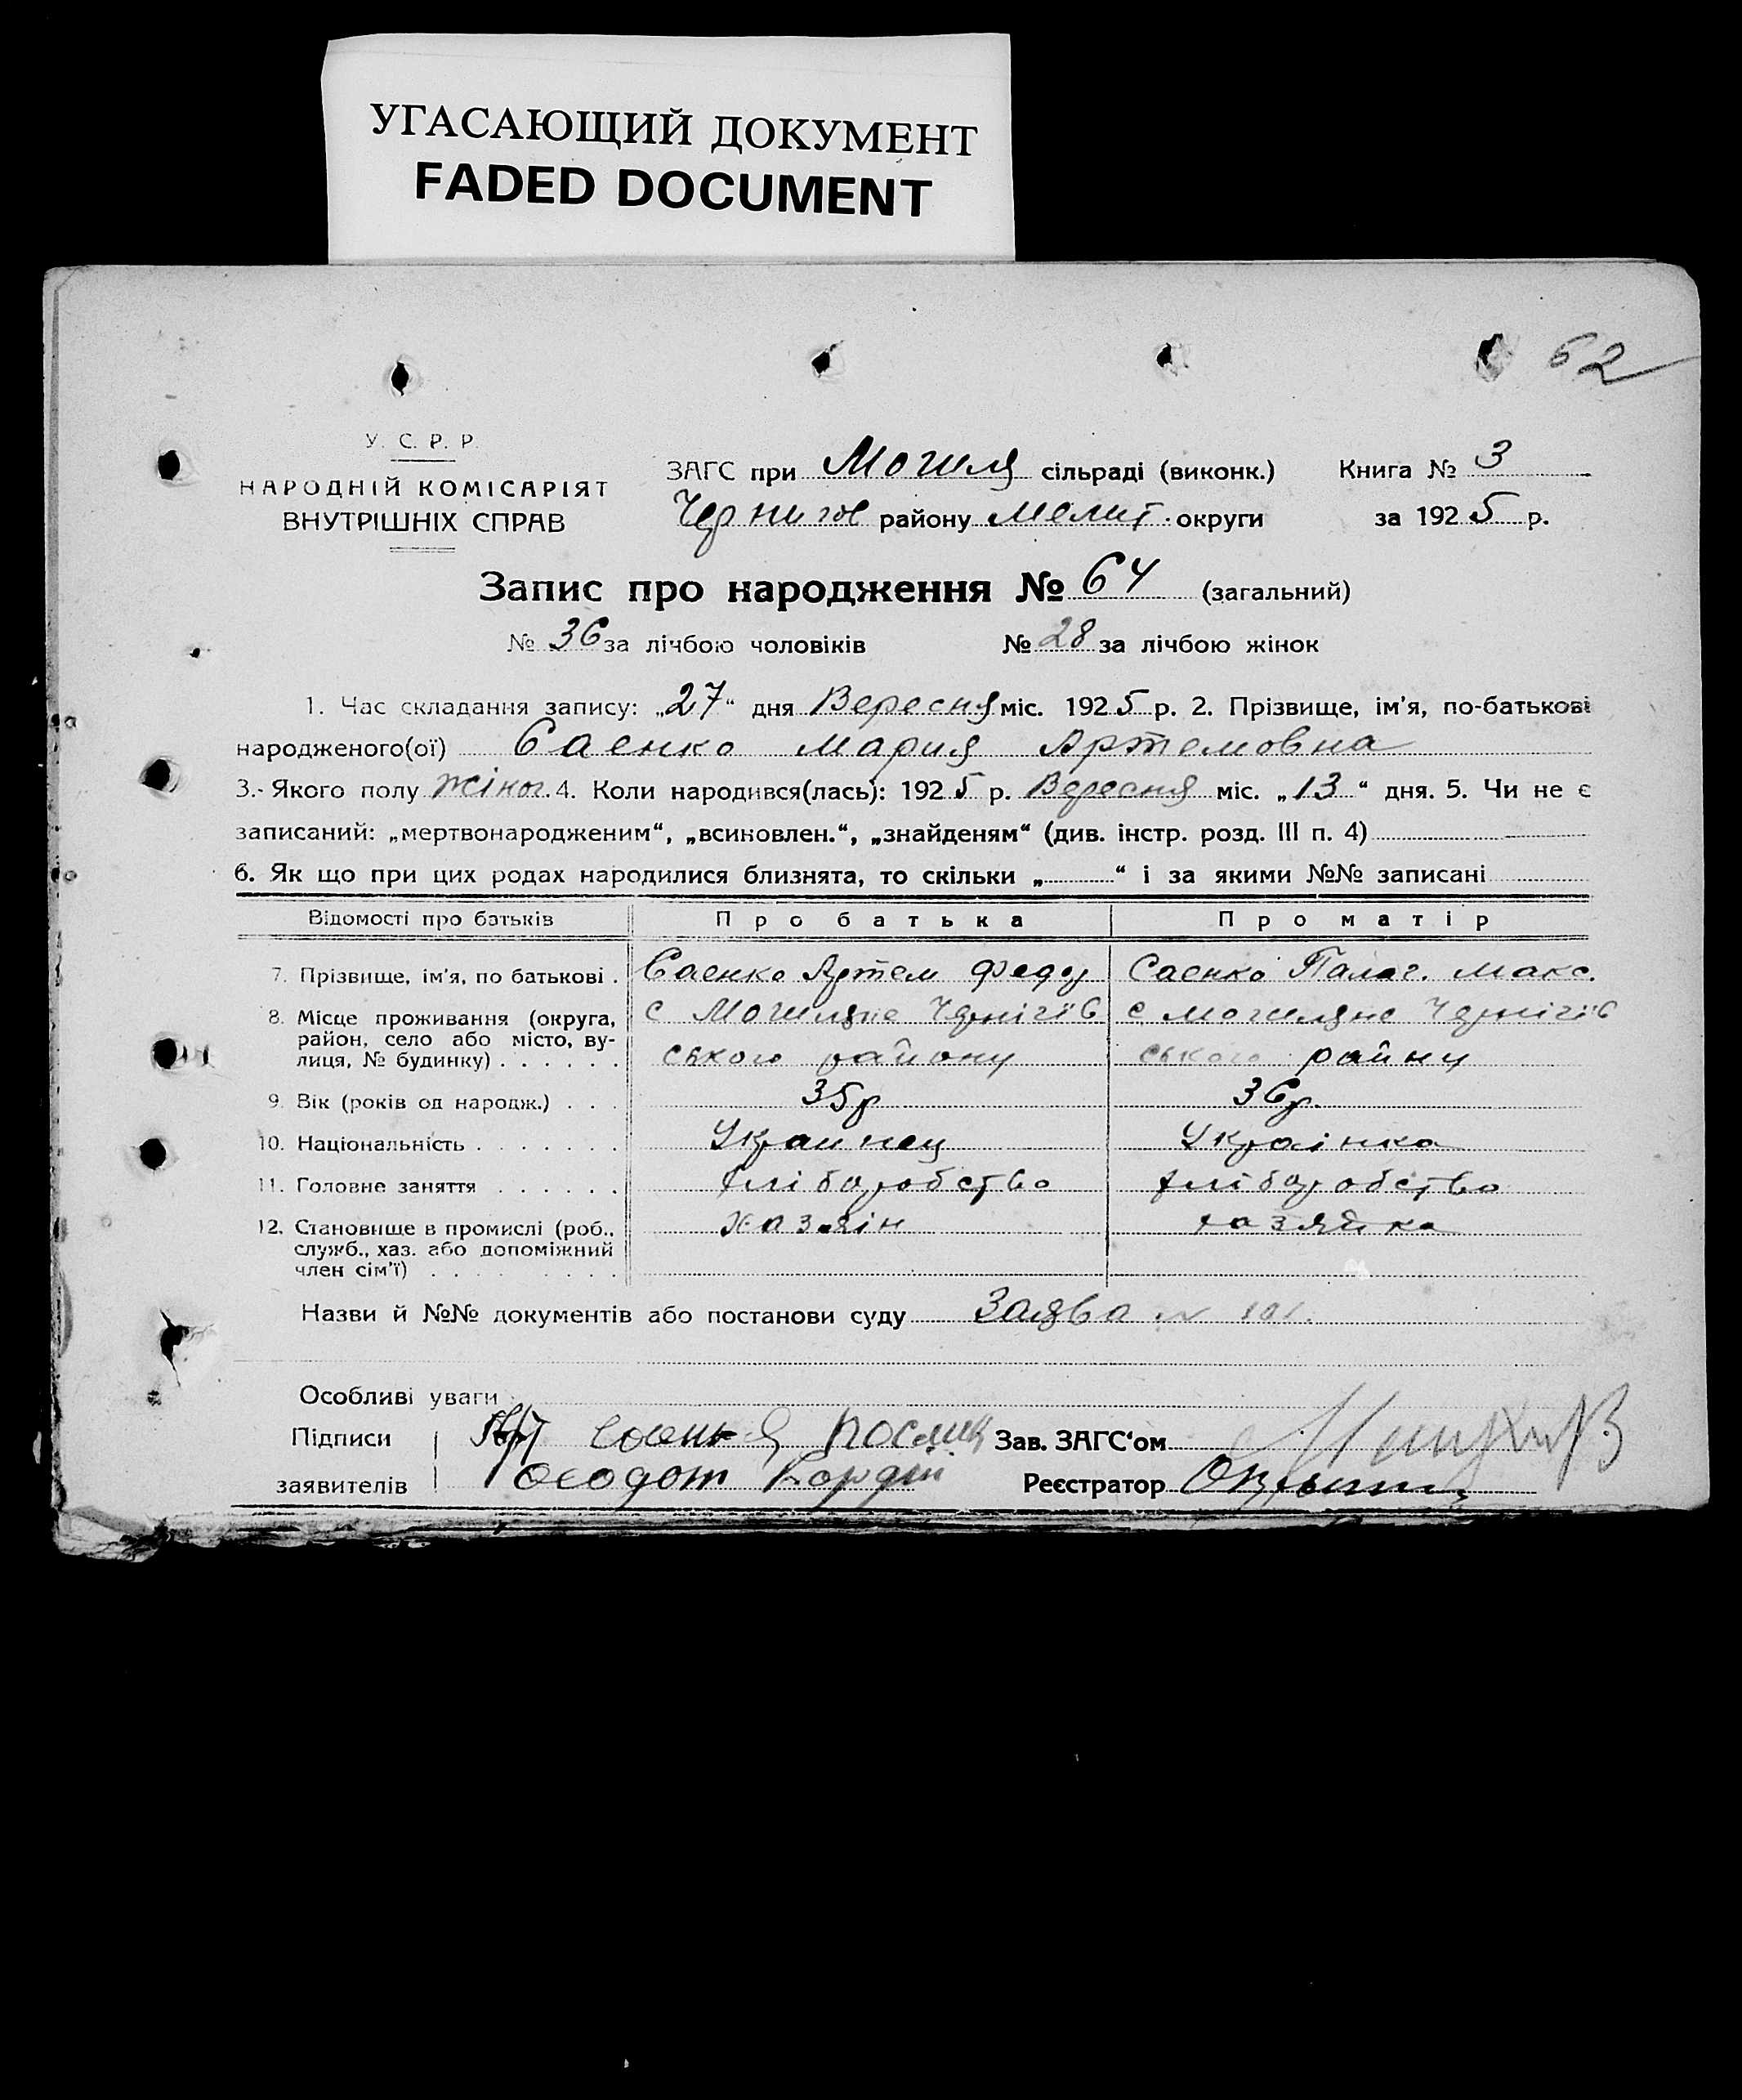 УГАСАЮЩИЙ ДОКУМЕНТ
FADED DOCUMENT
62
У. С. Р. Р.
НАРОДНІЙ КОМІСАРІЯТ
ВНУТРІШНІХ СПРАВ
ЗАГС при Могиля сільраді (виконк.) Книга № 3
Чернигов району Мелит. округи за 1925 р.
Запис про народження № 64 (загальний)
№ 36 за лічбою чоловіків № 28 за лічбою жінок
1. Час складання запису: „27“ дня Вересня міс. 1925 р. 2. Прізвище, ім'я, по-батькові
народженого(ої) Саенко Мария Артемовна
3. Якого полу жіноч. 4. Коли народився(лась): 1925 р. Вересня міс. „13“ дня. 5. Чи не є
записаний: „мертвонародженим“, „всиновлен.“, „знайденям“ (див. інстр. розд. III п. 4)
6. Як що при цих родах народилися близнята, то скільки „ “ і за якими №№ записані
Відомості про батьків Про батька Про матір
7. Прізвище, ім'я, по батькові . Саенко Артем Федор Саенко Палаг. Макс.
8. Місце проживання (округа, с Могиляне Чернігів с Могиляне Чернігів
район, село або місто, ву-
лиця, № будинку) . . . . . . ського району ського району
9. Вік (років од народж.) . . . 35р 36р.
10. Національність . . . . . . . Украинец Українка
11. Головне заняття . . . . . . хліборобство хліборобство
12. Становище в промислі (роб., хазяїн хазяйка
служб., хаз. або допоміжний
член сім'ї) . . . . . . . . .
Назви й №№ документів або постанови суду Заява № 101.
Особливі уваги
Підписи Зав. ЗАГС'ом
заявителів Реєстратор